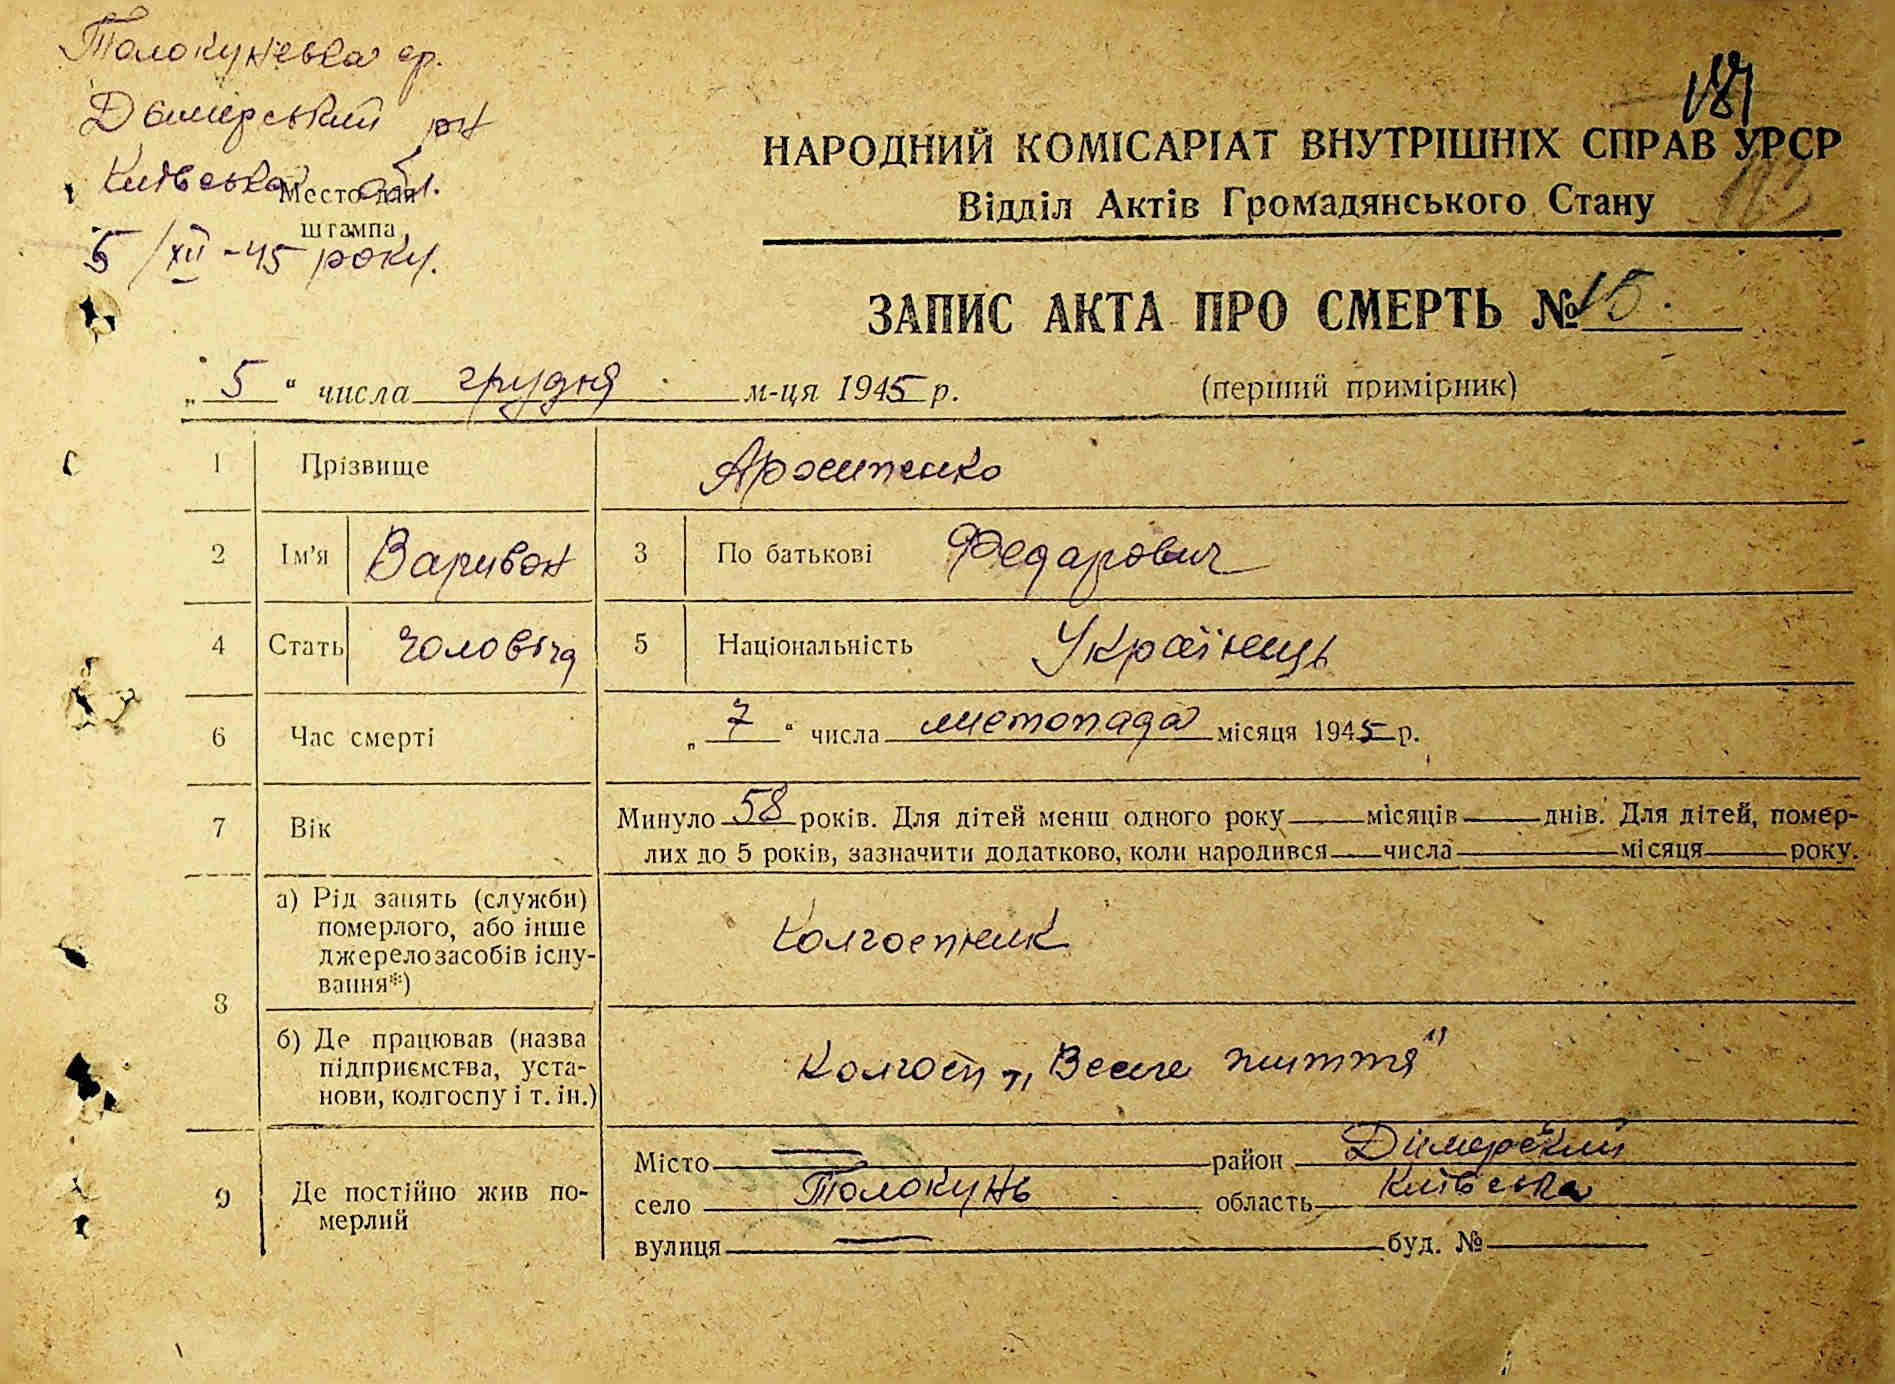 Толокунська ср.
Димерський р-н
Київська обл.
Место для
штампа
5/XII-45 року.
181
113
НАРОДНИЙ КОМІСАРІАТ ВНУТРІШНІХ СПРАВ УРСР
Відділ Актів Громадянського Стану
ЗАПИС АКТА ПРО СМЕРТЬ № 15.
„5“ числа грудня м-ця 1945 р. (перший примірник)
1 Прізвище Архипенко
2 Ім’я Варивон 3 По батькові Федарович
4 Стать чоловіча 5 Національність Українець
6 Час смерті „7“ числа листопада місяця 1945 р.
7 Вік Минуло 58 років. Для дітей менш одного року — місяців — днів. Для дітей, помер-
лих до 5 років, зазначити додатково, коли народився — числа — місяця — року.
8 а) Рід занять (служби)
померлого, або інше
джерело засобів існу-
вання*) Колгоспник
б) Де працював (назва
підприємства, уста-
нови, колгоспу і т. ін.) Колгосп „Веселе життя"
9 Де постійно жив по-
мерлий
Місто — район Димерский
село Толокунь область Київська
вулиця — буд. №